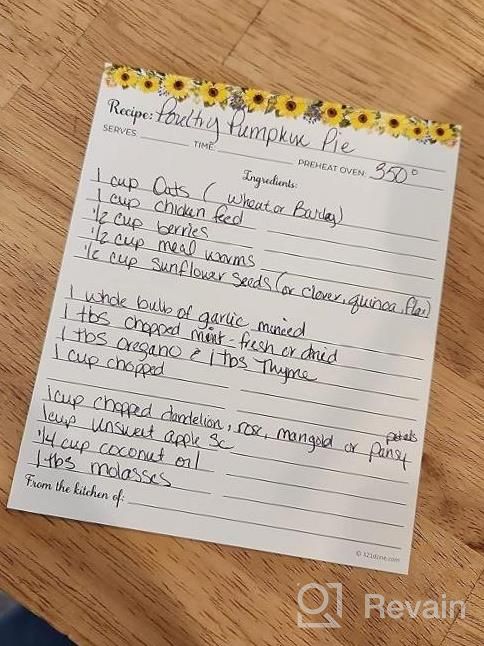 Recipe: Poultry Pumpkin Pie
SERVES: TIME PREHEAT OVEN: 350°
Ingredients:
1 cup Oats ( wheat or Barley)
1 cup chicken feed
1/2 cup berries
1/2 cup meal worms
1/2 cup sunflower seeds (or clover, quinoa, flax)
1 whole bulb of garlic minced
1 tbs chopped mint - fresh or dried
1 tbs oregano & 1 tbs Thyme
1 cup chopped
1 cup chopped dandelion, rose, mangold or pansy petals
1 cup unsweet apple Sc
1/4 cup coconut oil
1 tbs molasses
From the kitchen of:
© 321done.com
Revain